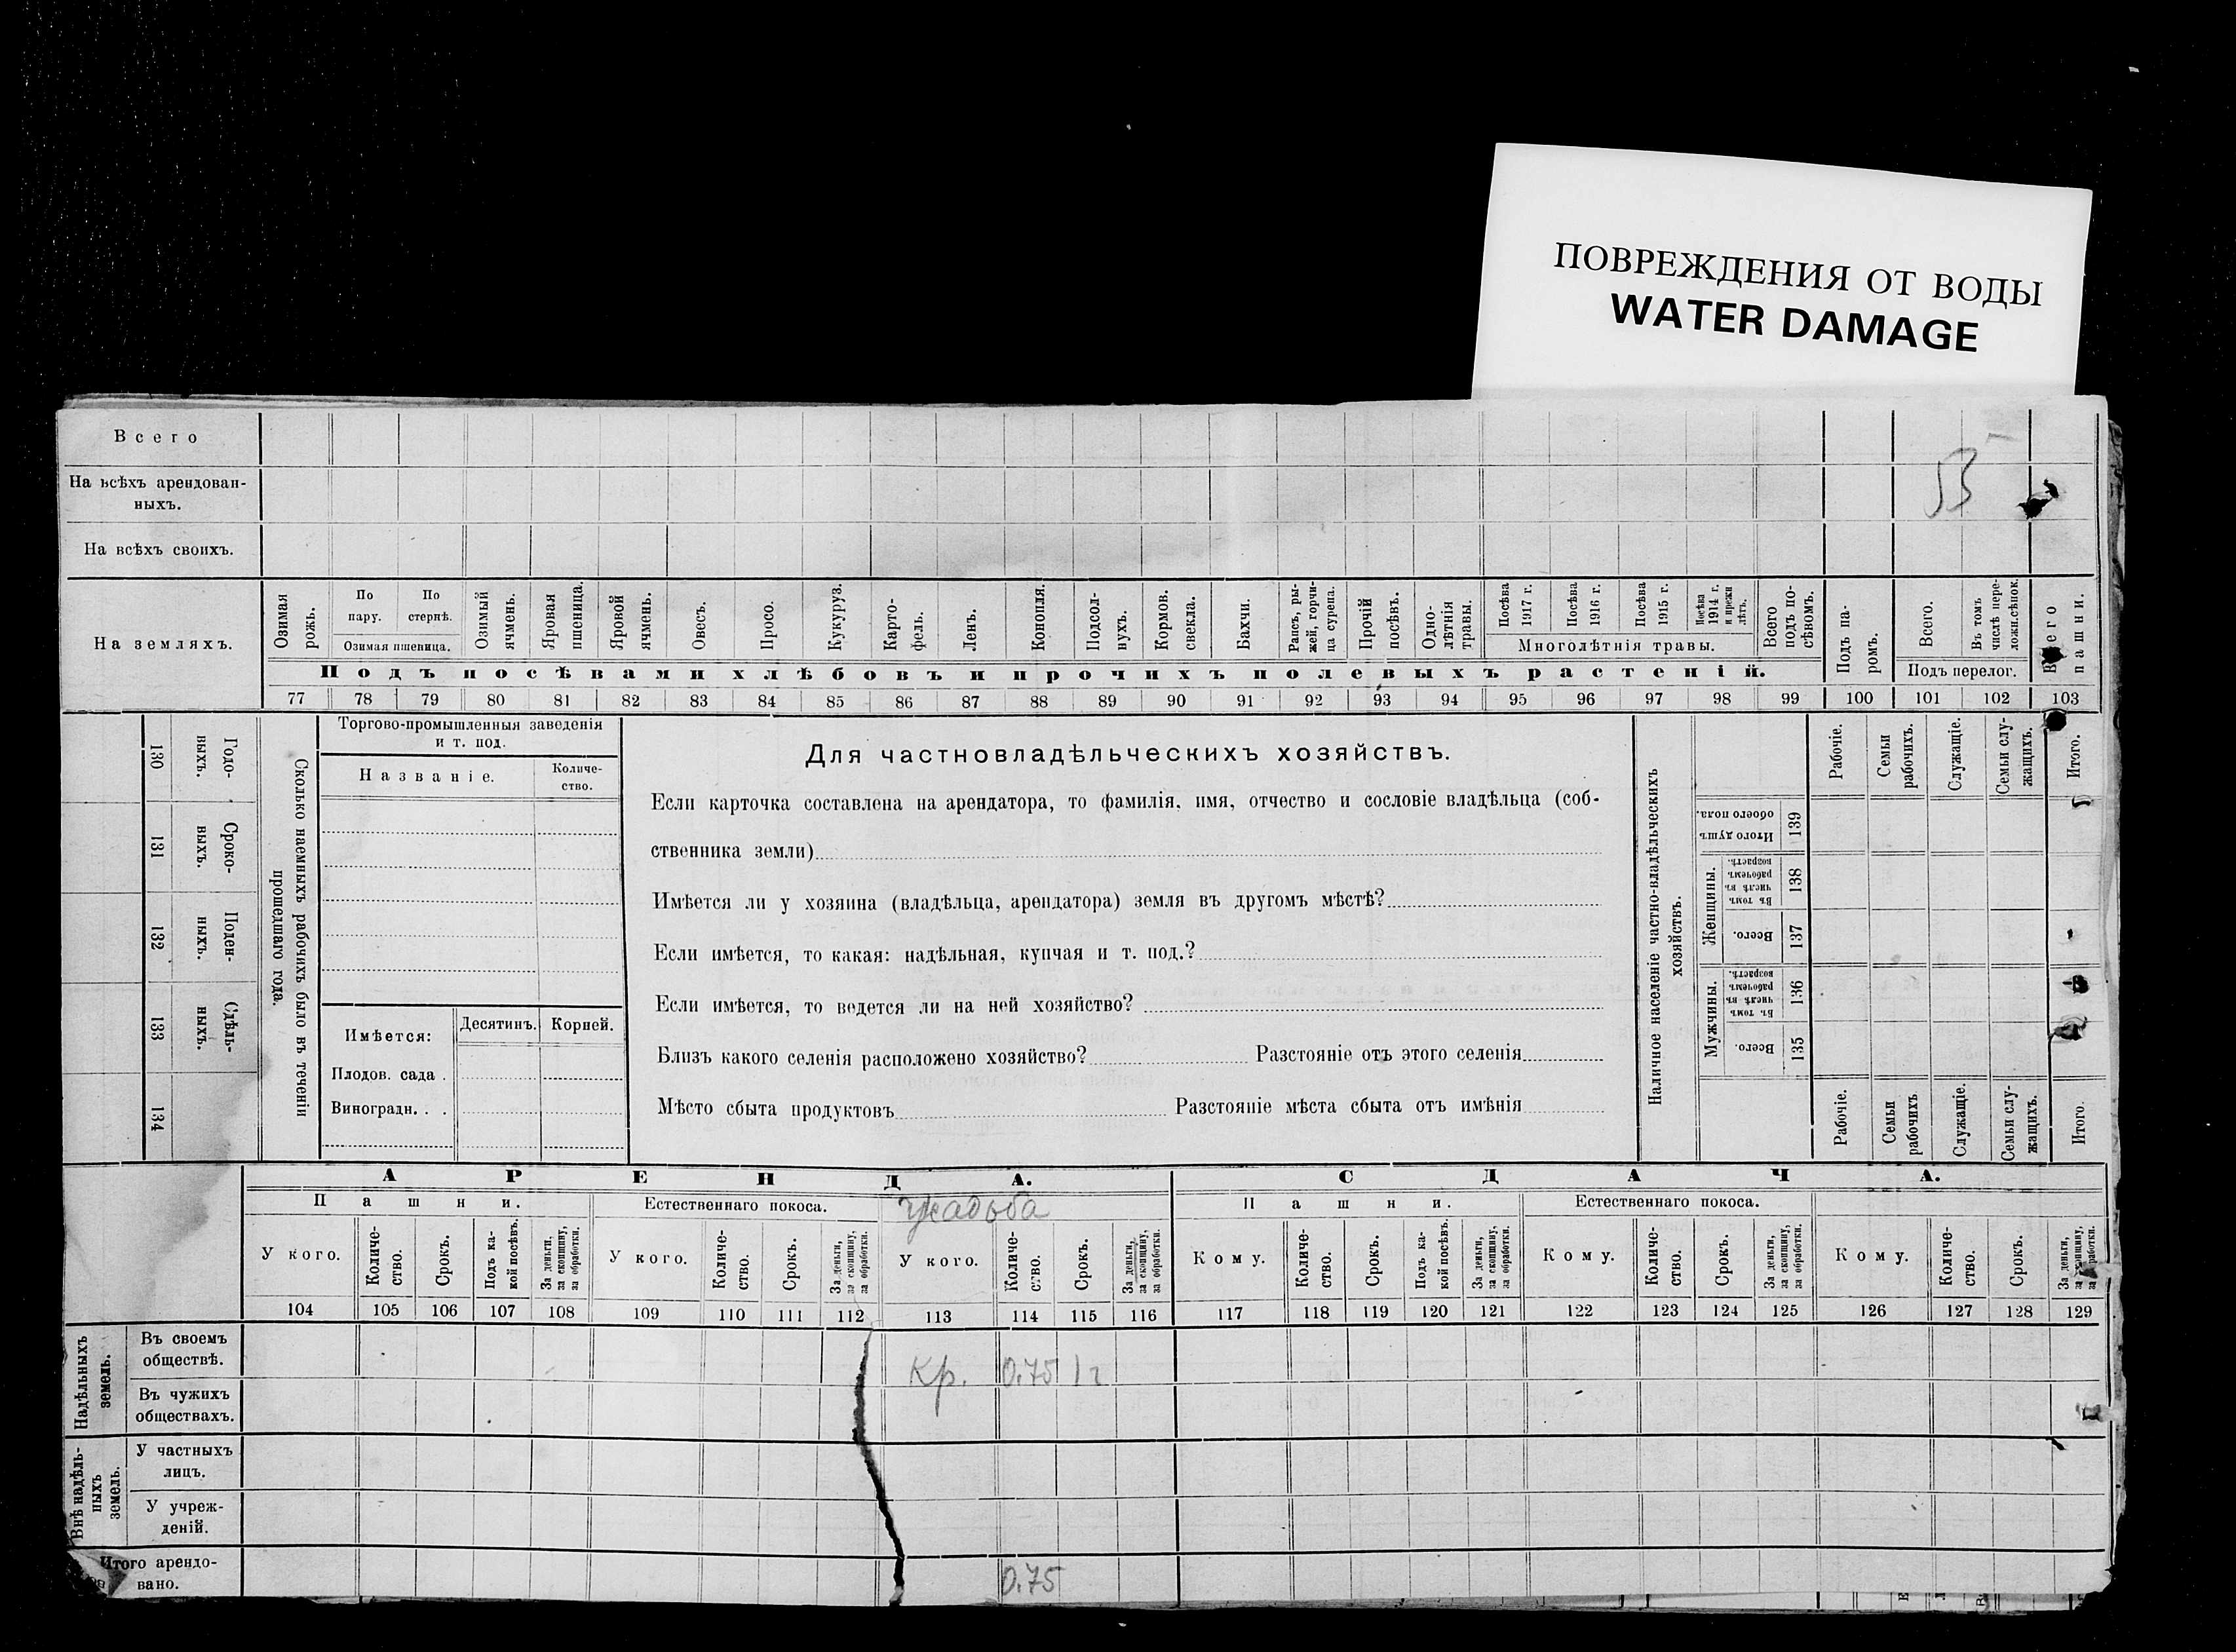 ПОВРЕЖДЕНИЯ ОТ ВОДЫ
WATER DAMAGE
Всего
На всѣхъ арендован-
ныхъ.
На всѣхъ своихъ.
На земляхъ.
Озимая рожь.
По пару.
По стернѣ.
Озимая пшеница.
Озимый ячмень.
Яровая пшеница.
Яровой ячмень.
Овесъ.
Просо.
Кукуруз.
Карто-
фель.
Ленъ.
Конопля.
Подсол-
нухъ.
Кормов.
свекла.
Бахчи.
Рапсъ, ры-
жей, горчи-
ца сурепа.
Прочій
посѣвъ.
Одно-
лѣтнія
травы.
Посѣва 1917 г.
Посѣва 1916 г.
Посѣва 1915 г.
Посѣва 1914 г. и прежн лѣтъ.
Многолѣтнія травы.
Всего
подъ по-
сѣвомъ.
Подъ па-
ромъ.
Всего.
Въ томъ
числѣ пере-
ложн.сѣнок.
Подъ перелог.
Всего
пашни.
Подъ посѣвами хлѣбовъ и прочихъ полевыхъ растеній.
77 78 79 80 81 82 83 84 85 86 87 88 89 90 91 92 93 94 95 96 97 98 99 100 101 102 103
130 Годо-
выхъ.
131 Сроко-
ныхъ.
132 Поден-
ныхъ.
133 Сдѣль-
ныхъ.
134
Сколько наемныхъ рабочихъ было въ теченіи
прошедшаго года.
Торгово-промышленныя заведенія
и т. под.
Названіе.
Количе-
ство.
Имѣется:
Десятинъ.
Корней.
Плодов. сада .
Виноградн. . .
Для частновладѣльческихъ хозяйствъ.
Если карточка составлена на арендатора, то фамилія, имя, отчество и сословіе владѣльца (соб-
ственника земли)
Имѣется ли у хозяина (владѣльца, арендатора) земля въ другомъ мѣстѣ?
Если имѣется, то какая: надѣльная, купчая и т. под.?
Если имѣется, то ведется ли на ней хозяйство?
Близъ какого селенія расположено хозяйство? Разстояніе отъ этого селенія
Мѣсто сбыта продуктовъ Разстояніе мѣста сбыта отъ имѣнія
Наличное населеніе частно-владѣльческихъ
хозяйствъ.
Рабочіе.
Семьи
рабочихъ.
Служащіе.
Семьи слу-
жащихъ.
Итого.
Итого душъ
обоего пола.
139
Женщины.
Въ томъ
числѣ въ
рабочемъ
возрастѣ.
138
Всего.
137
Мужчины.
Въ томъ
числѣ въ
рабочемъ
возрастѣ.
136
Всего.
135
Рабочіе.
Семьи
рабочихъ
Служащіе.
Семьи слу-
жащихъ.
Итого.
АРЕНДА.
СДАЧА.
Пашни.
Естественнаго покоса.
Усадьба
Пашни.
Естественнаго покоса.
У кого.
Количе-
ство.
Срокъ.
Подъ ка-
кой посѣвъ.
За деньги,
за скопщину,
за обработки.
У кого.
Количе-
ство.
Срокъ.
За деньги,
за скопщину,
за обработки.
У кого.
Количе-
ство.
Срокъ.
За деньги,
за скопщину,
за обработки.
Кому.
Количе-
ство.
Срокъ.
Подъ ка-
кой посѣвъ.
За деньги,
за скопщину,
за обработки.
Кому.
Количе-
ство.
Срокъ.
За деньги,
за скопщину,
за обработки.
Кому.
Количе-
ство.
Срокъ.
За деньги,
за скопщину,
за обработки.
104 105 106 107 108 109 110 111 112 113 114 115 116 117 118 119 120 121 122 123 124 125 126 127 128 129
Надѣльныхъ
земель.
Въ своемъ
обществѣ.
Кр. 0.75 1 г
Въ чужихъ
обществахъ.
Внѣ надѣль-
ныхъ
земель.
У частныхъ
лицъ.
У учреж-
деній.
Итого арендо-
вано.
0.75